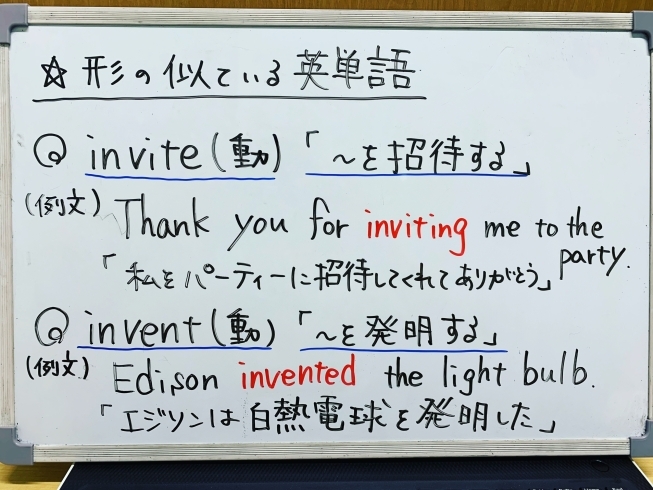 ☆ 形の似ている英単語
◎ invite(動) 「～を招待する」
(例文) Thank you for inviting me to the party.
「私をパーティーに招待してくれてありがとう」
◎ invent(動) 「～を発明する」
(例文) Edison invented the light bulb.
「エジソンは白熱電球を発明した」